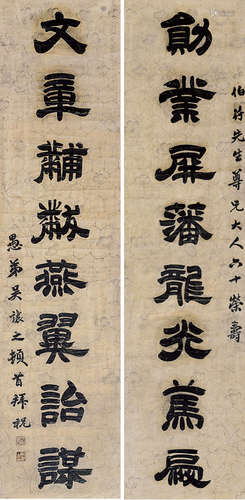 伯符先生尊兄大人六十榮壽
勛業屏藩龍光篤祜
文章黼黻燕翼詒謀
愚弟吳讓之頓首拜祝